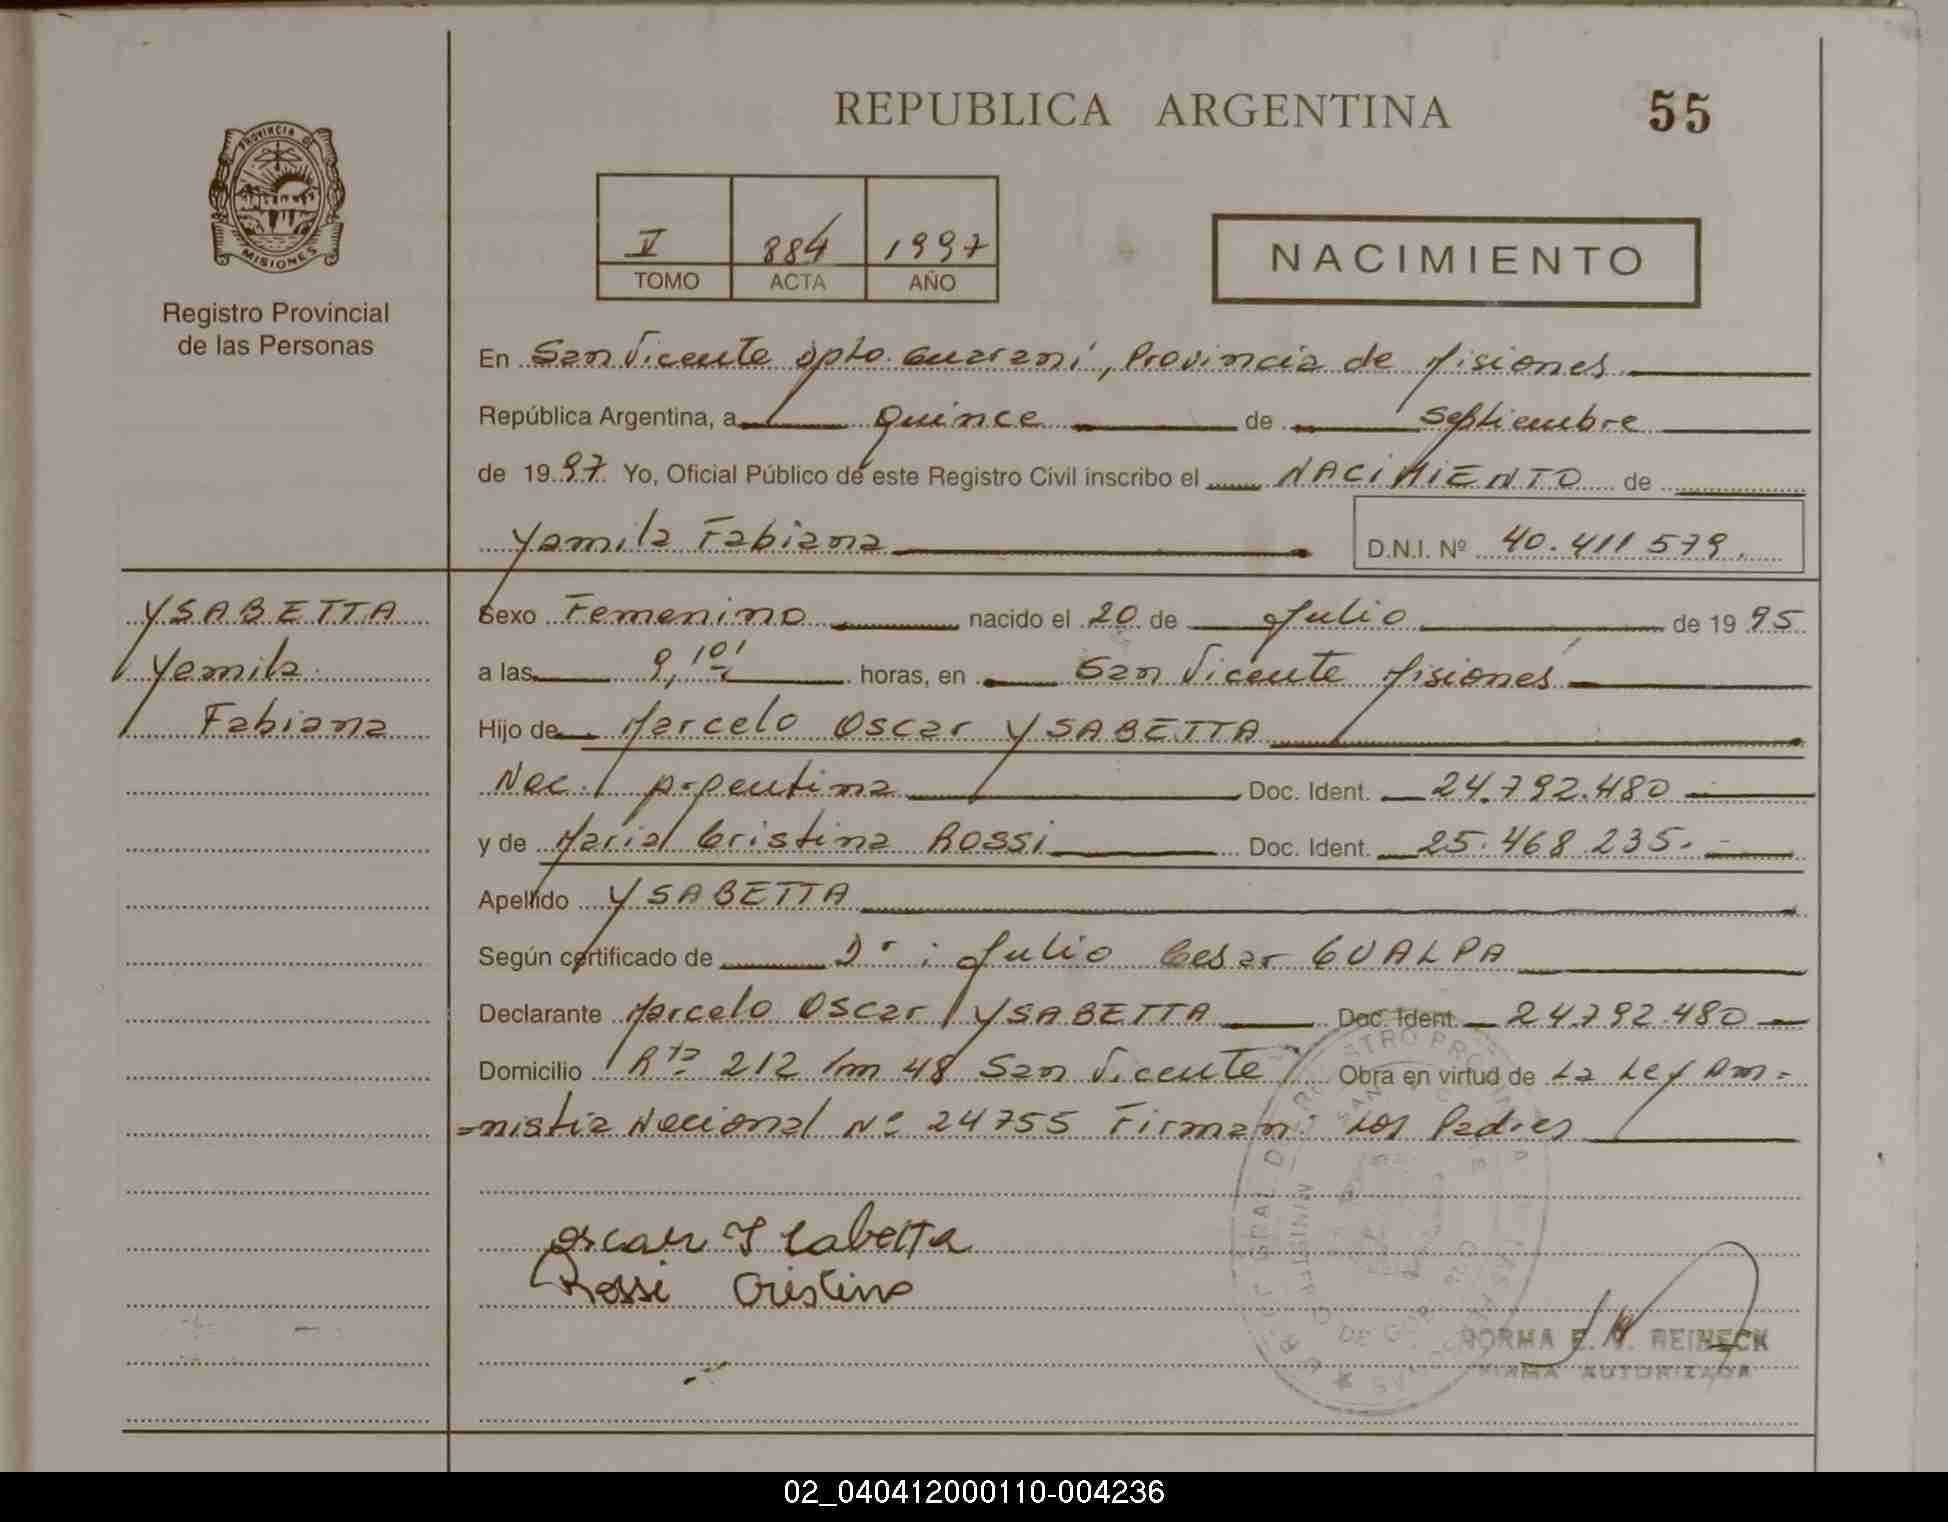 REPUBLICA ARGENTINA
55
PROVINCIA DE
MISIONES
Registro Provincial
de las Personas
V 884 1997
TOMO ACTA AÑO
NACIMIENTO
En San Vicente Dpto. Guaraní, Provincia de Misiones
República Argentina, a Quince de Septiembre
de 1997 Yo, Oficial Público de este Registro Civil inscribo el NACIMIENTO de
Yamila Fabiana D.N.I. Nº 40.411 579.
YSABETTA
Yamila
Fabiana
Sexo Femenino nacido el 20 de Julio de 1995
a las 9,10' horas, en San Vicente Misiones
Hijo de Marcelo Oscar YSABETTA
Nac. Argentina Doc. Ident. 24.792.480
y de Maria Cristina ROSSI Doc. Ident. 25.468 235.
Apellido YSABETTA
Según certificado de Dr: Julio Cesar GUALPA
Declarante Marcelo Oscar YSABETTA Doc. Ident. 24.792.480
Domicilio Rta 212 km 48 San Vicente Obra en virtud de La Ley Am=
=nistia Nacional Nº 24755 Firman: Los Padres
Oscar Ysabetta
Rossi Cristina
NORMA E. V. REINECK
FIRMA AUTORIZADA
02_040412000110-004236